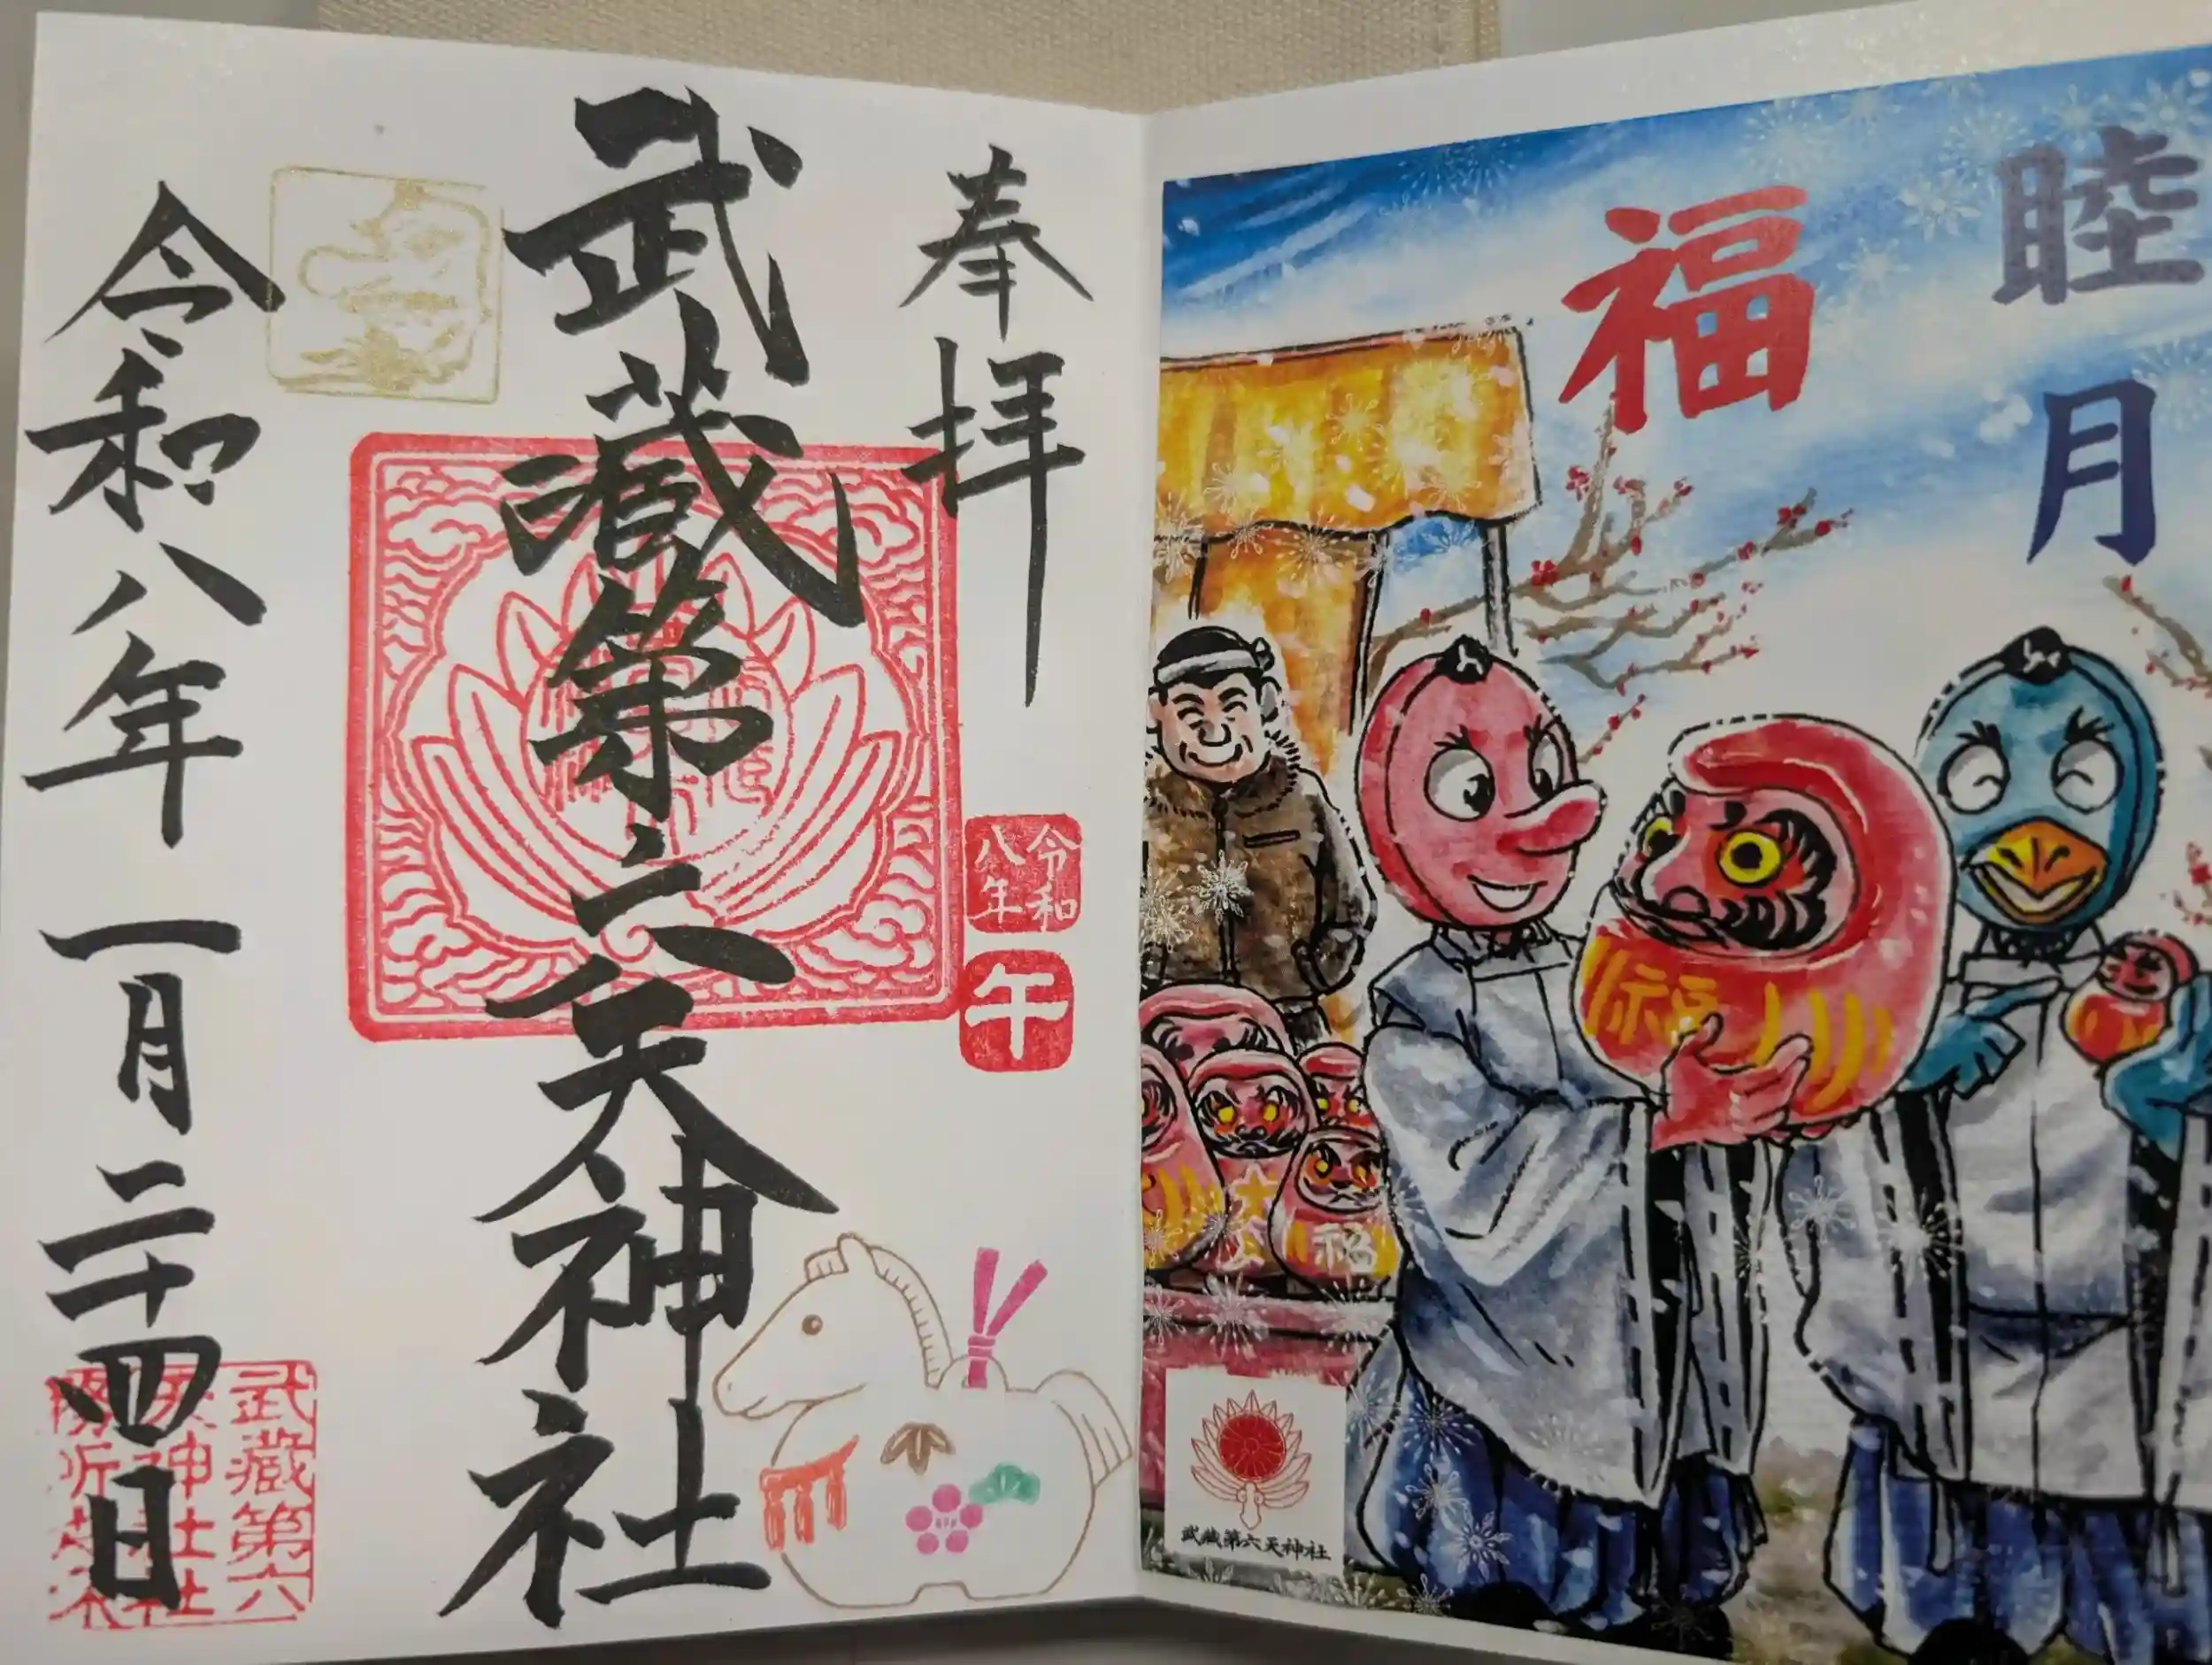 睦月
福
福
大
福
武蔵第六天神社
奉拝
武蔵第六天神社
令和
八年
午
令和八年一月二十四日
武蔵第六
天神社社
務所之印